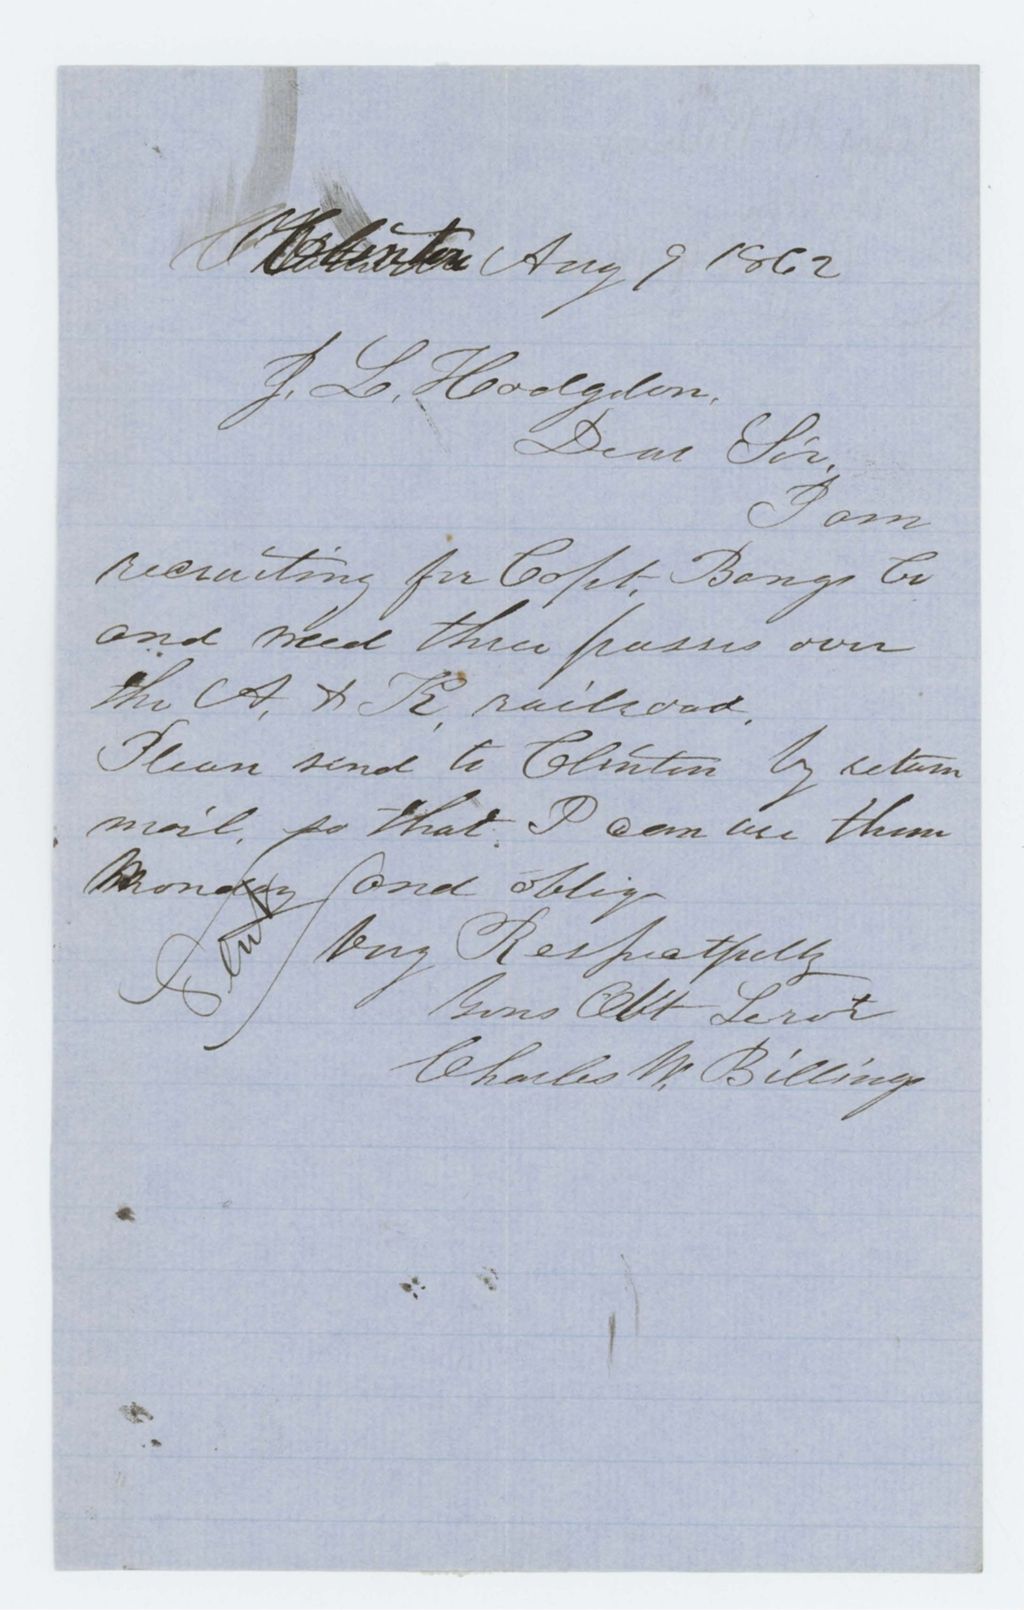 Clinton Aug 9 1862
J. L. Hodgdon,
Dear Sir,
I am
recruiting for Capt. Bangs Co
and need three passes over
the A. & K. railroad.
Please send to Clinton by return
mail, so that I can use them
Monday and oblige
Sent
Very Respectfully
Yours Obt Servt
Charles W. Billings